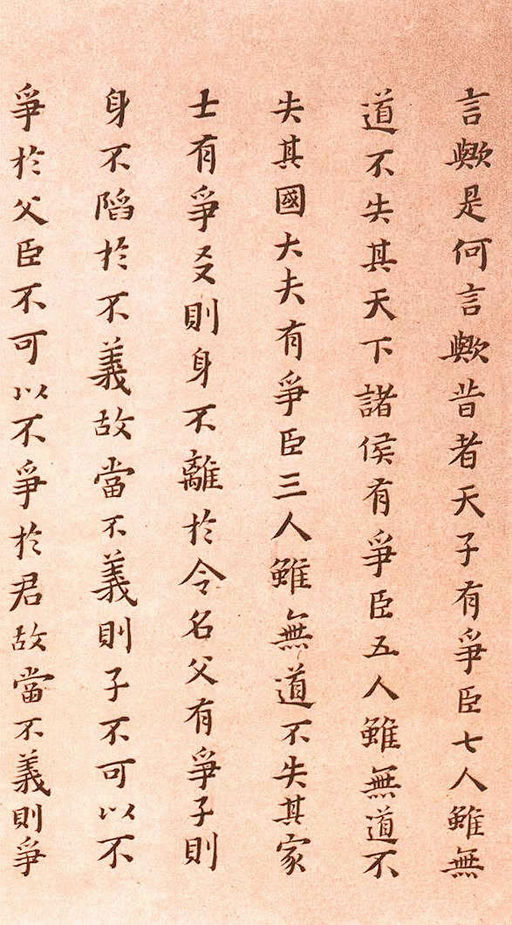 言歟是何言歟昔者天子有爭臣七人雖無
道不失其天下諸侯有爭臣五人雖無道不
失其國大夫有爭臣三人雖無道不失其家
士有爭友則身不離於令名父有爭子則
身不陷於不義故當不義則子不可以不
爭於父臣不可以不爭於君故當不義則爭